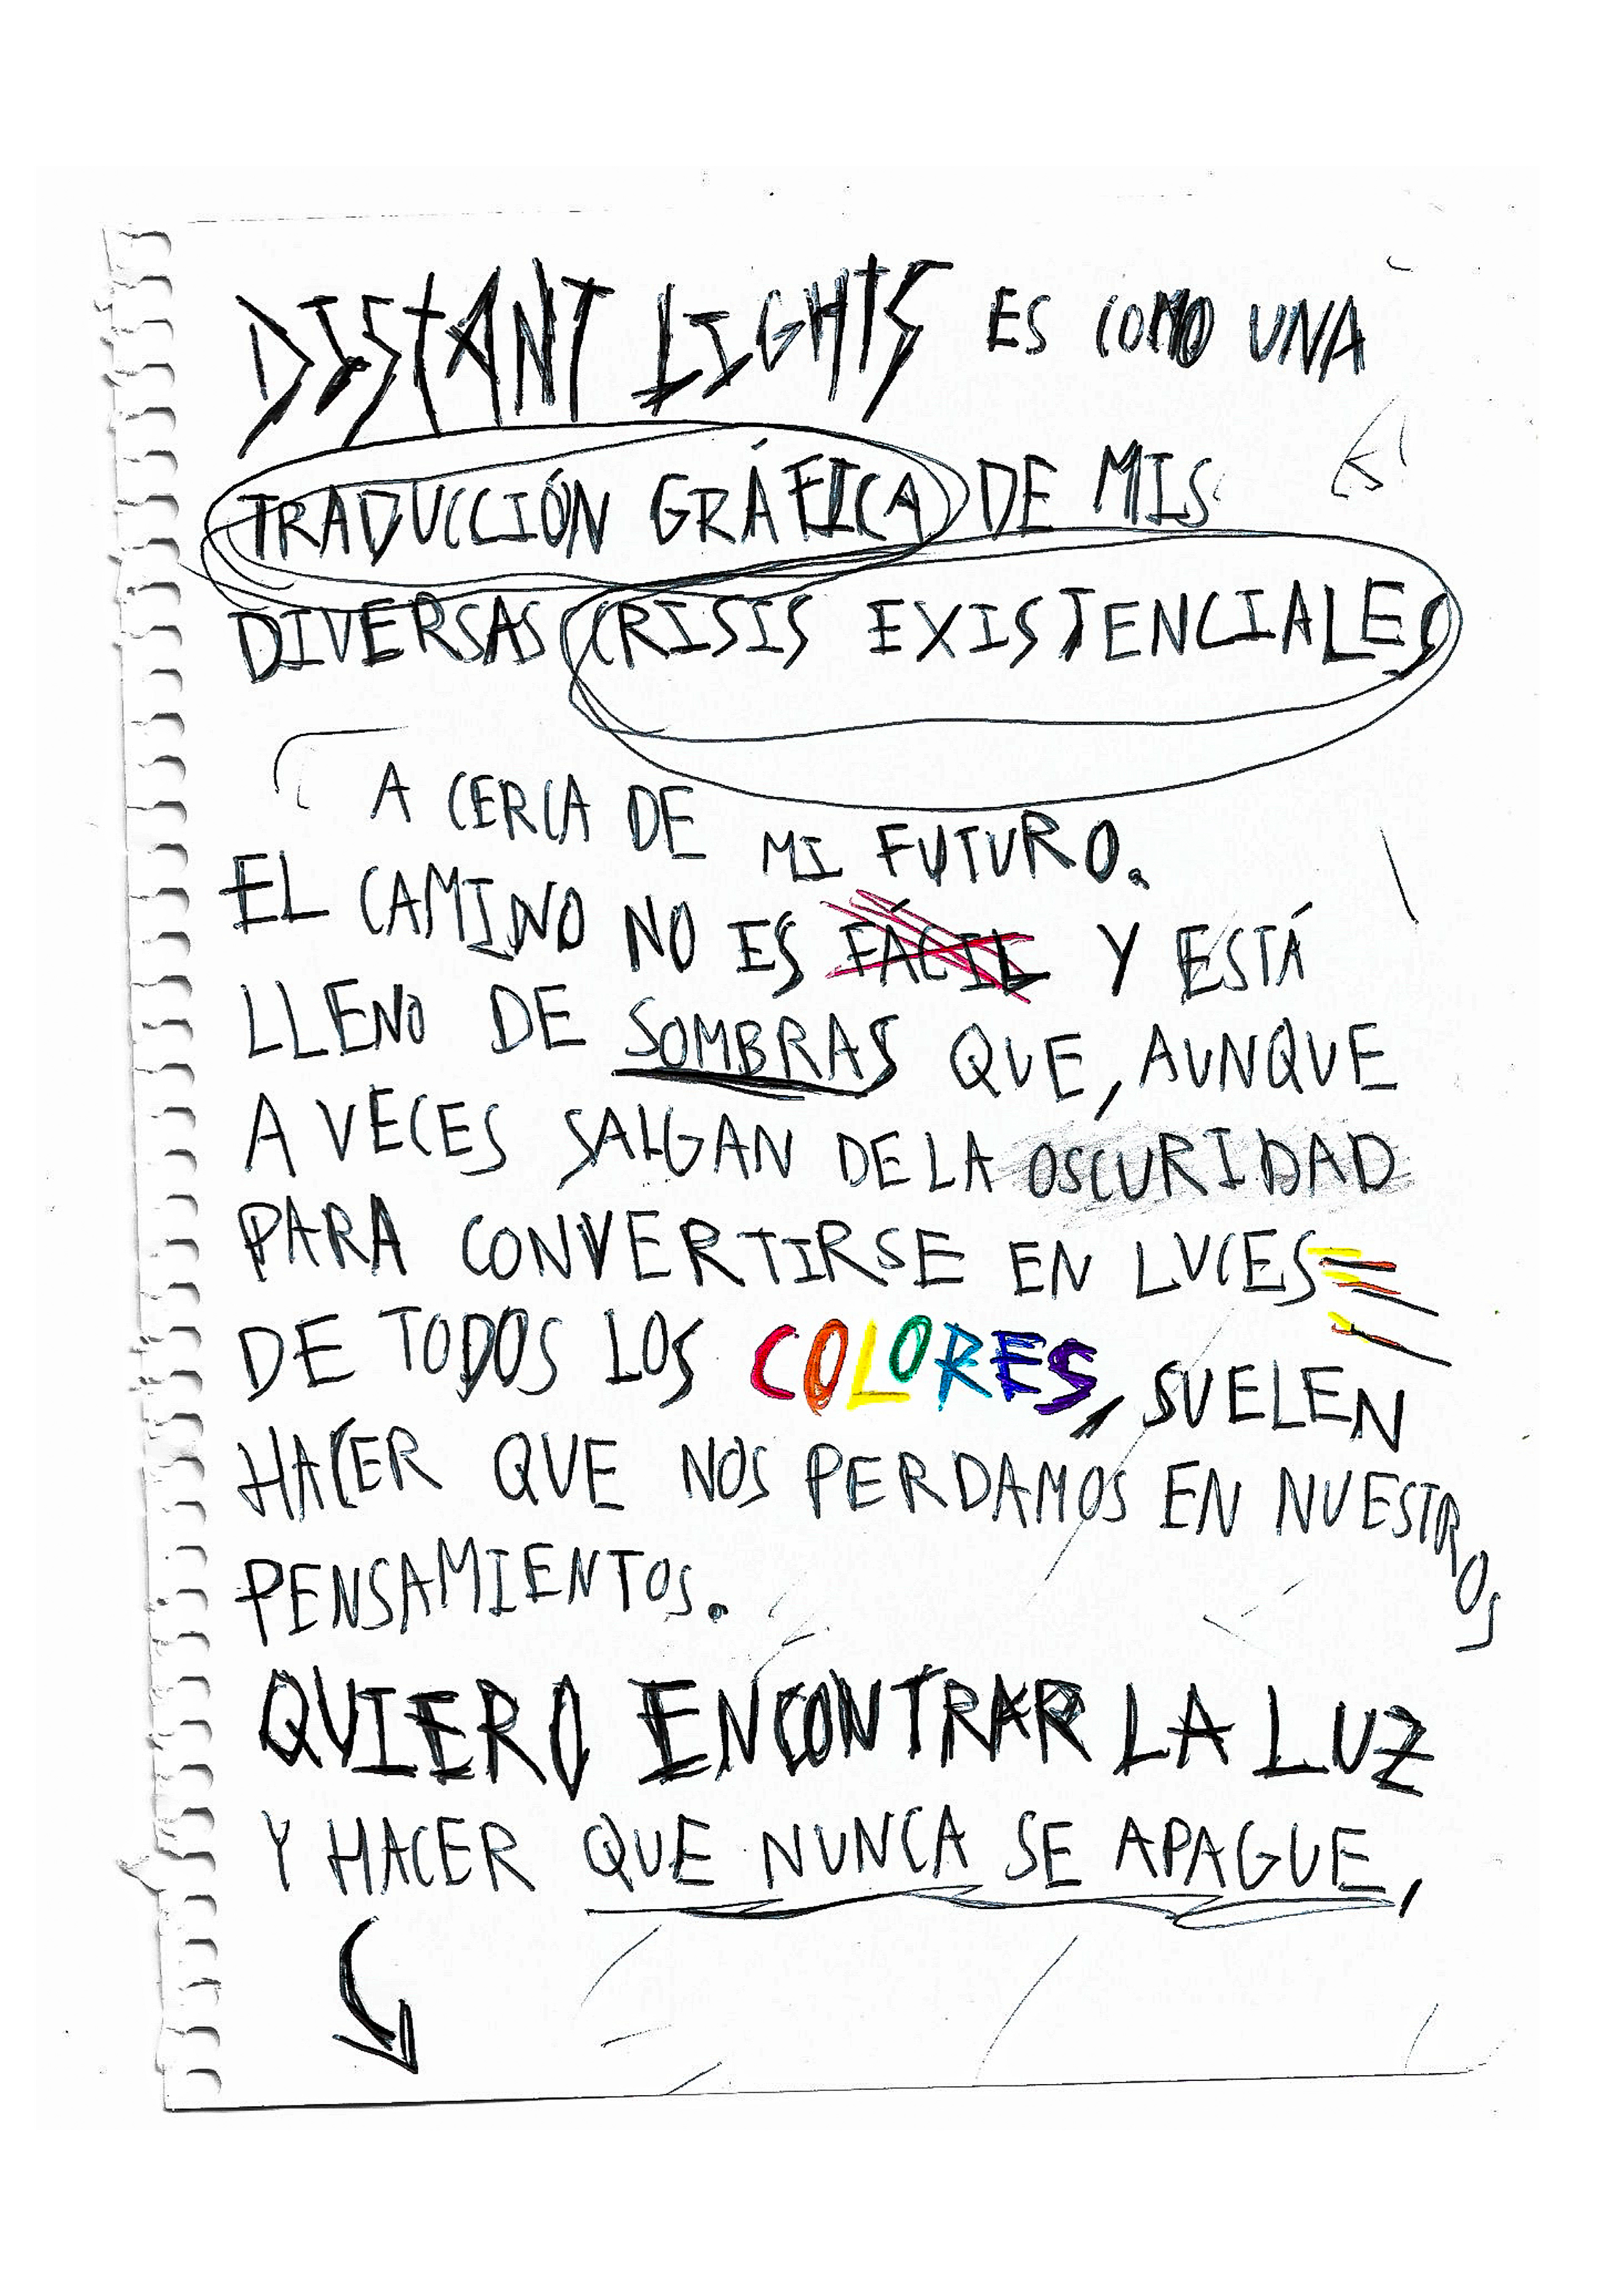 DISTANT LIGHTS ES COMO UNA
TRADUCCIÓN GRÁFICA DE MIS
DIVERSAS CRISIS EXISTENCIALES
A CERCA DE MI FUTURO.
EL CAMINO NO ES FÁCIL Y ESTÁ
LLENO DE SOMBRAS QUE, AUNQUE
A VECES SALGAN DE LA OSCURIDAD
PARA CONVERTIRSE EN LUCES
DE TODOS LOS COLORES, SUELEN
HACER QUE NOS PERDAMOS EN NUESTROS
PENSAMIENTOS.
QUIERO ENCONTRAR LA LUZ
Y HACER QUE NUNCA SE APAGUE,